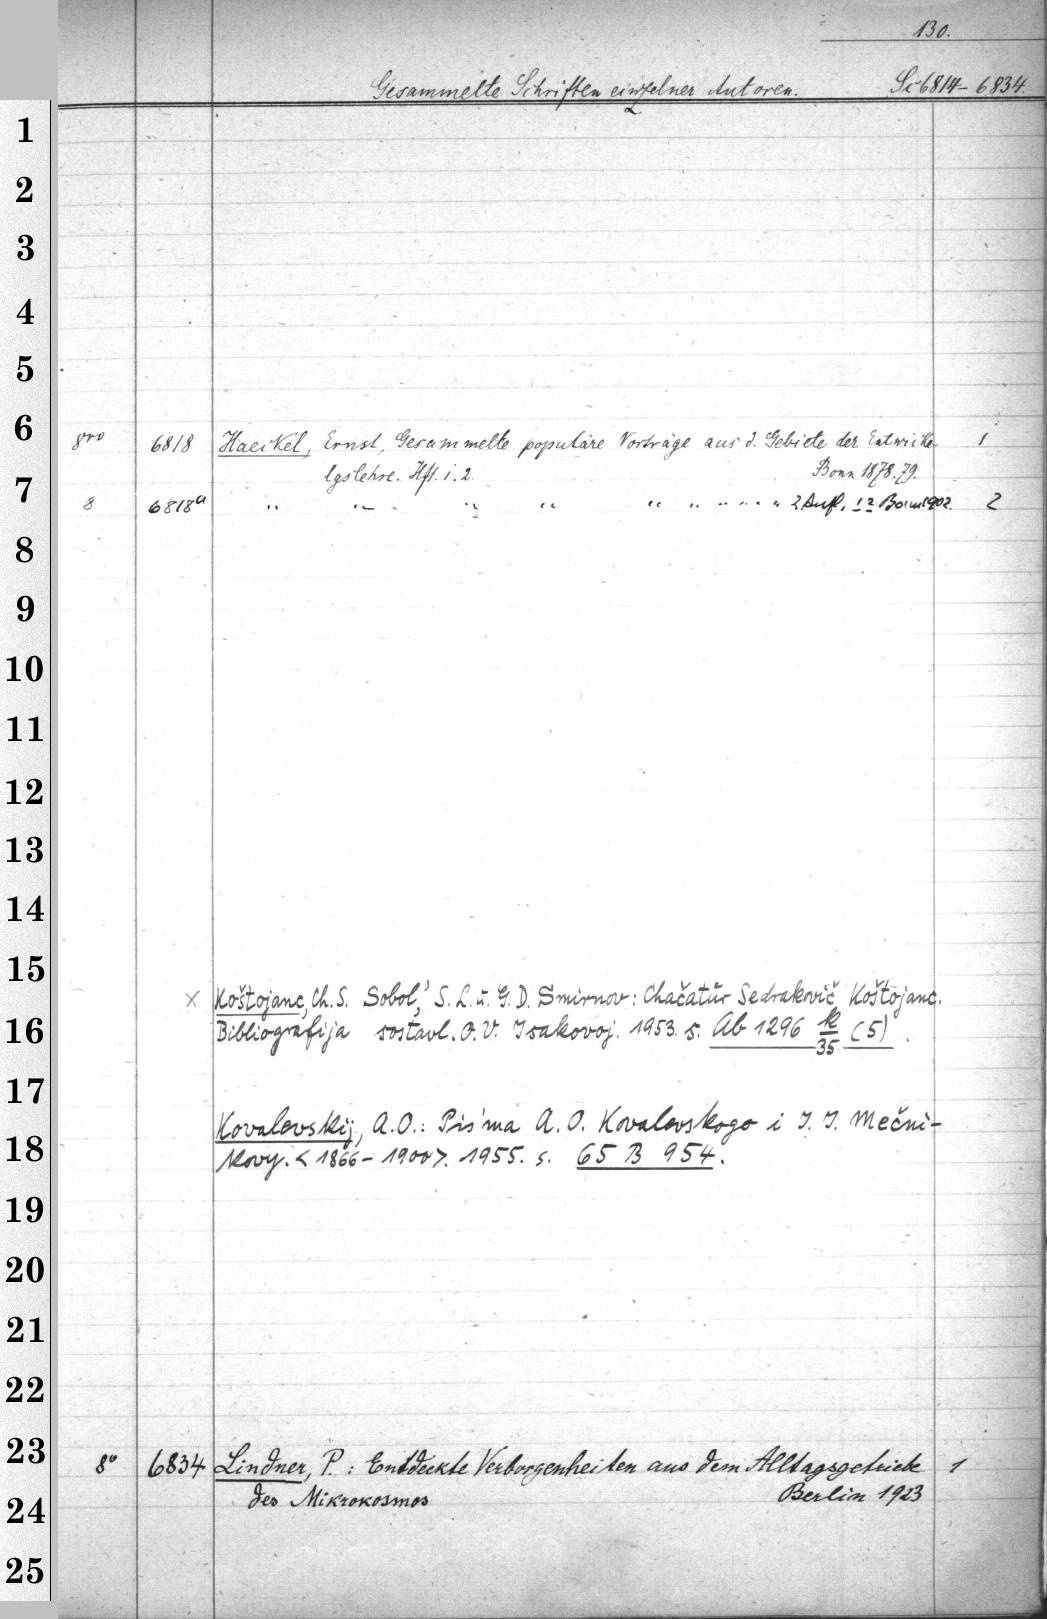 130.
Gesammelte Schriften einzelner Autoren. Sc 6814-6834.
1
2
3
4
5
6
8vo 6818 Haeckel, Ernst, Gesammelte populäre Vorträge aus d. Gebiete der Entwicke- 1
lgslehre. Hft. 1. 2. Bonn 1878.79.
7
8 6818a " " " " " " " " " " 2 Aufl. 1 2 Bonn 1902. 2
8
9
10
11
12
13
14
15
x Koštojanc, Ch. S. Sobol', S. L. u. G. D. Smirnov: Chačatur Sedrakovič Koštojanc.
16
Bibliografija sostavl. O. V. Isakovoj. 1953. s. Ab 1296 k/35 (5).
17
Kovalevskij, A. O.: Pis'ma A. O. Kovalevskogo i I. I. Mečni-
18
kovy. <1866-1900>. 1955. s. 65 B 954.
19
20
21
22
23
8° 6834 Lindner, P.: Entdeckte Verborgenheiten aus dem Alltagsgetriebe 1
des Mikrokosmos Berlin 1923
24
25